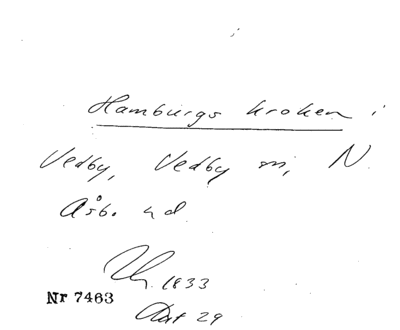 Hamburgs kroken i
Vedby, Vedby sn, N.
Åsb. hd
1833
Nr 7463
29